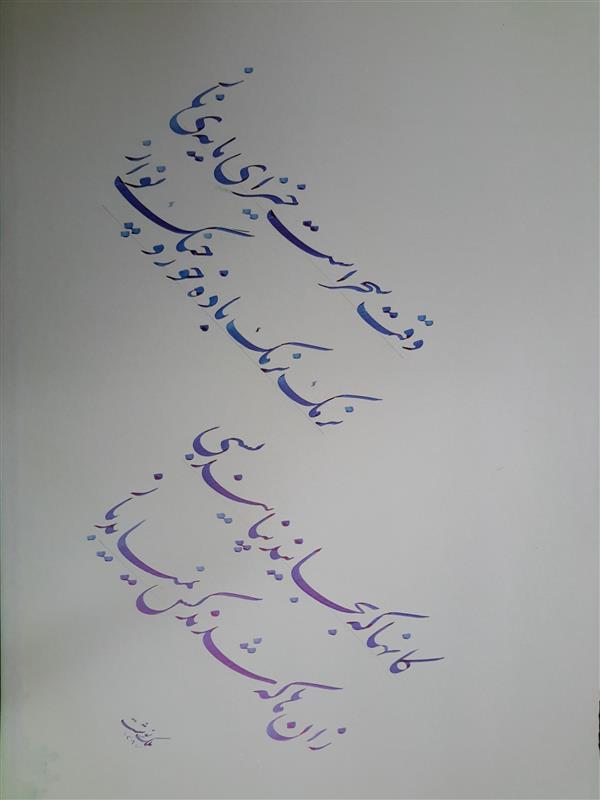 وقت سحر است خیز ای مایه‌ی ناز
نرمک نرمک باده خور و چنگ نواز
کانها که بجایند نپایند بسی
زان ها که شدند کس نمیاید باز